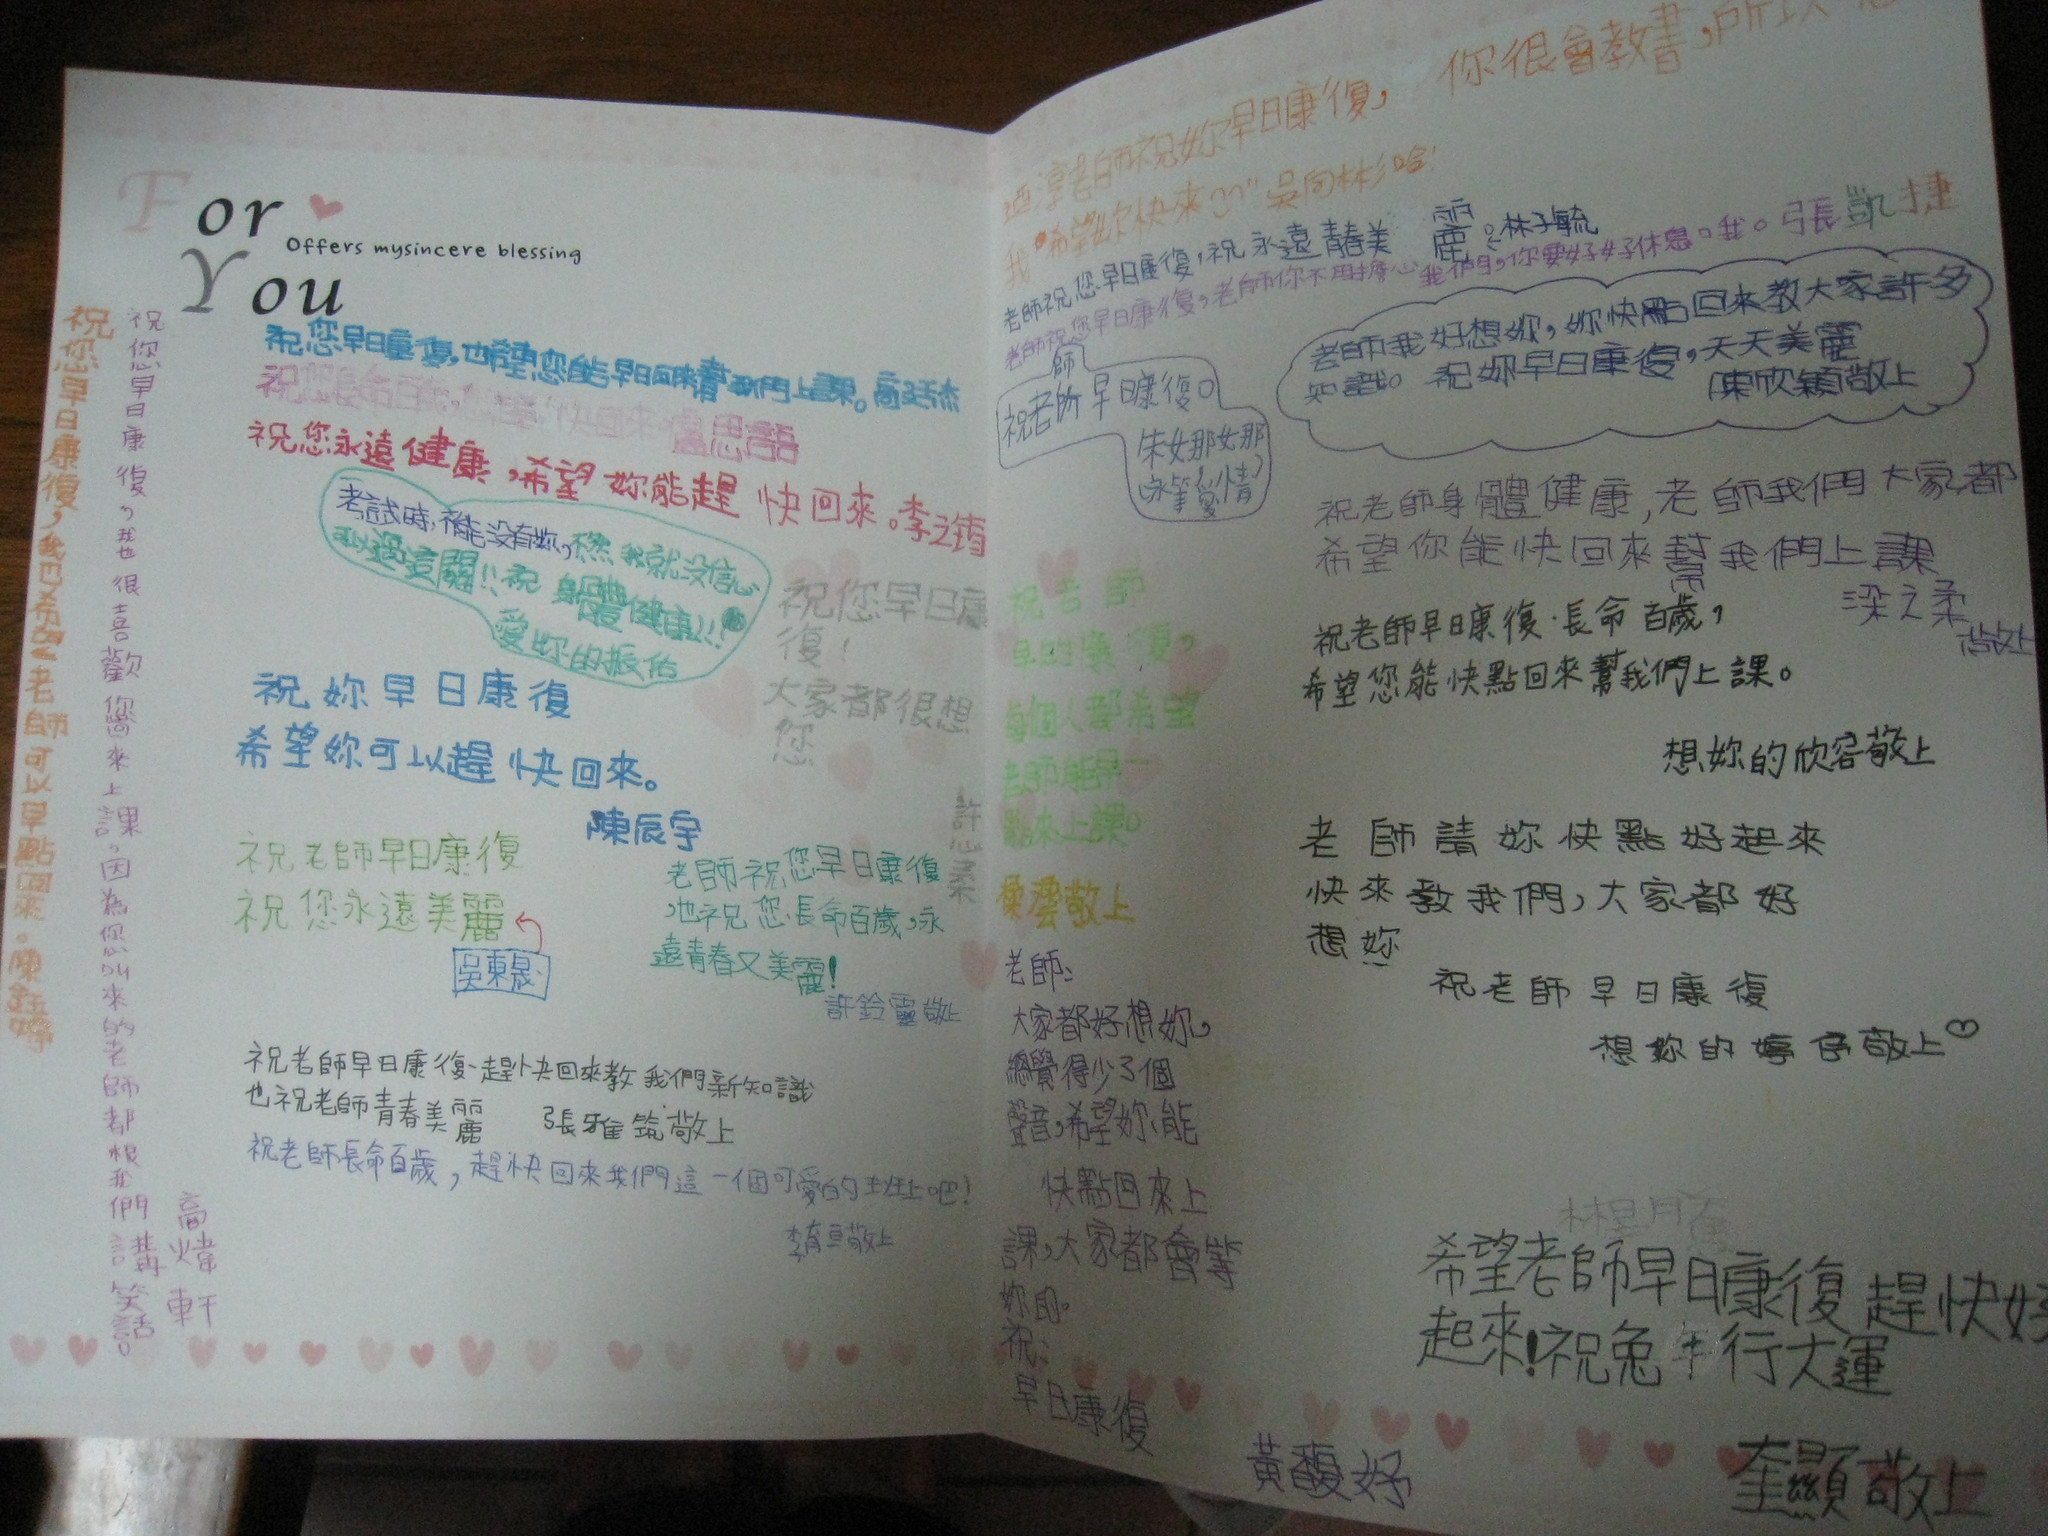 For
Offers mysincere blessing
You
祝您早日康復,我也希望老師可以早點回來。陳鈺婷
祝您早日康復,我也很喜歡您來上課,因為您叫來的老師都根我們講笑話。
高煒軒
祝您早日康復,也希望您能早日回來幫我們上課。
祝您長命百歲,快回來 盧思語
祝您永遠健康,希望妳能趕快回來。李之筠
考試時,不能沒有妳,不然我就沒信心
可以過這關!!祝身體健康!!!
愛妳的振佑
祝您早日康
復!
大家都很想
您
許心柔
祝妳早日康復
希望妳可以趕快回來。
陳辰宇
祝老師早日康復
祝您永遠美麗
吳東晟
老師祝您早日康復
,也祝您長命百歲,永
遠青春又美麗!
許鈴靈敬上
祝老師早日康復、趕快回來教我們新知識
也祝老師青春美麗 張雅筑敬上
祝老師長命百歲,趕快回來我們這一個可愛的班上吧!
李育亘敬上
老師祝妳早日康復, 你很會教書,所以
我希望妳快來
老師祝您早日康復,祝永遠青春美麗 林子毓
老師祝您早日康復,老師你不用擔心我們,你要好好休息。我。張凱捷
老師我好想妳,妳快點回來教大家許多
知識。祝妳早日康復,天天美麗
陳欣穎敬上
師
祝老師早日康復。
朱娜娜
祝老師
早日康復,
每個人都希望
老師能早一
點來上課。
敬上
祝老師身體健康,老師我們大家都
希望你能快回來幫我們上課
梁之柔
敬上
祝老師早日康復.長命百歲,
希望您能快點回來幫我們上課。
想妳的欣容敬上
老師請妳快點好起來
快來教我們,大家都好
想妳
祝老師早日康復
想妳的婷伃敬上
老師:
大家都好想妳,
總覺得少了個
聲音,希望妳能
快點回來上
課,大家都會等
妳的。
祝:
早日康復
黃馥妤
希望老師早日康復趕快好
起來!祝兔年行大運
奎顯敬上